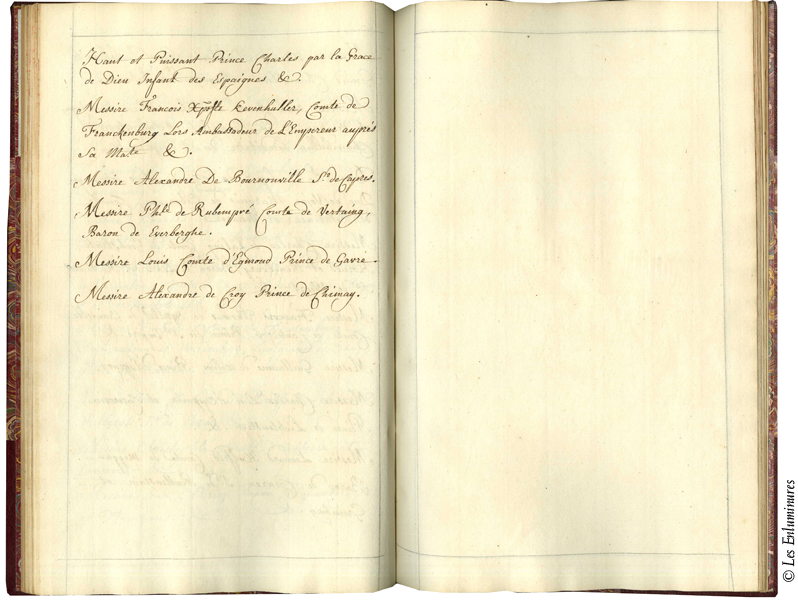 Haut et Puissant Prince Charles par la Grace
de Dieu Infant des Espaignes &.
Messire François Xpofle Kevenhuller, Comte de
Franckenburg Lors Ambassadeur de L'Empereur auprès
Sa Ma.te &.
Messire Alexandre De Bournonville S.r de Capres.
Messire Ph.le de Rubempré Comte de Vertaing,
Baron de Everberghe.
Messire Louis Comte d'Egmond Prince de Gavre.
Messire Alexandre de Croy Prince de Chimay.
© Les Enluminures